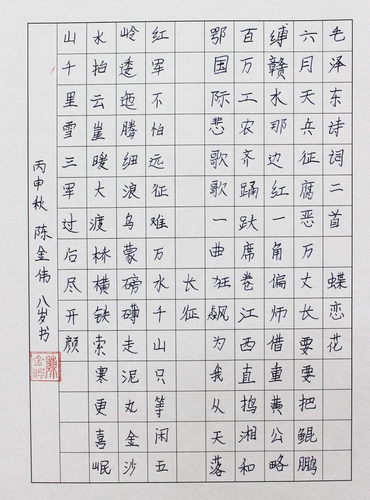 毛泽东诗词二首 蝶恋花
六月天兵征腐恶万丈长要要把鲲鹏
缚赣水那边红一角偏师借重黄公略
百万工农齐踊跃席卷江西直捣湘和
鄂国际悲歌歌一曲狂飙为我从天落
长征
红军不怕远征难万水千山只等闲五
岭逶迤腾细浪乌蒙磅礴走泥丸金沙
水拍云崖暖大渡桥横铁索寒更喜岷
山千里雪三军过后尽开颜
丙申秋 陈金伟 八岁书